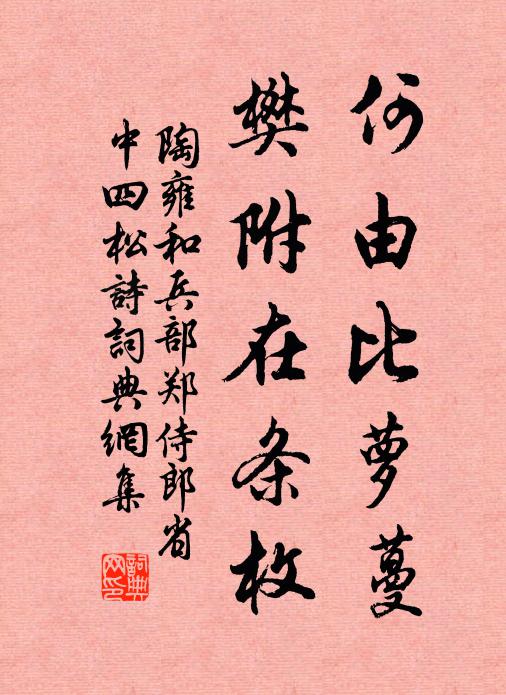 何由比萝蔓
樊附在条枚
陶雍和兵部郑侍郎省
中四松詩詞典網集
詞典
网印